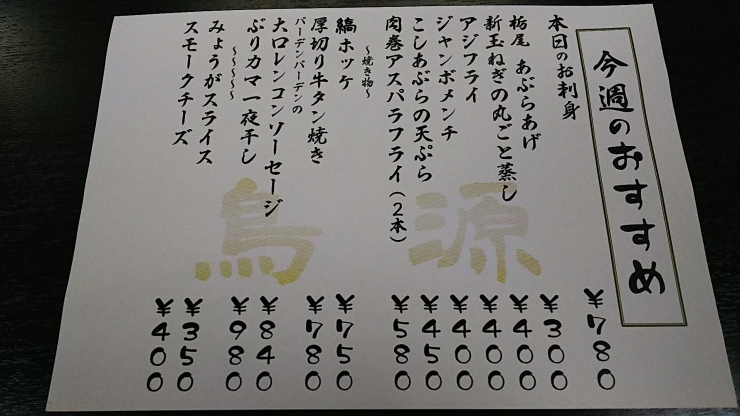 今週のおすすめ
本日のお刺身 ¥780
栃尾 あぶらあげ ¥300
新玉ねぎの丸ごと蒸し ¥400
アジフライ ¥400
ジャンボメンチ ¥400
こしあぶらの天ぷら ¥450
肉巻アスパラフライ(2本) ¥580
~焼き物~
縞ホッケ ¥750
厚切り牛タン焼き ¥780
バーデンバーデンの
大口レンコンソーセージ ¥840
ぶりカマ一夜干し ¥980
~~~~~
みょうがスライス ¥350
スモークチーズ ¥400
鳥源